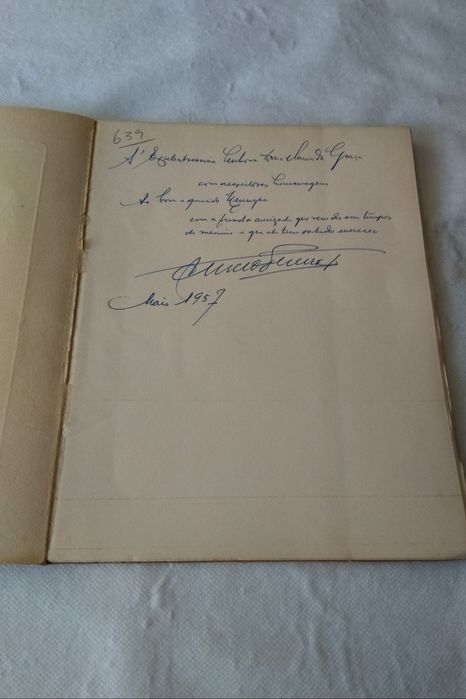 639
A' Excelentíssima Senhora Dona Maria da Graça
com respeitosas homenagens
Ao bom e querido Henrique
com a funda amizade que vem dos tempos
de menino e que ele tem sabido merecer
Maio 1957